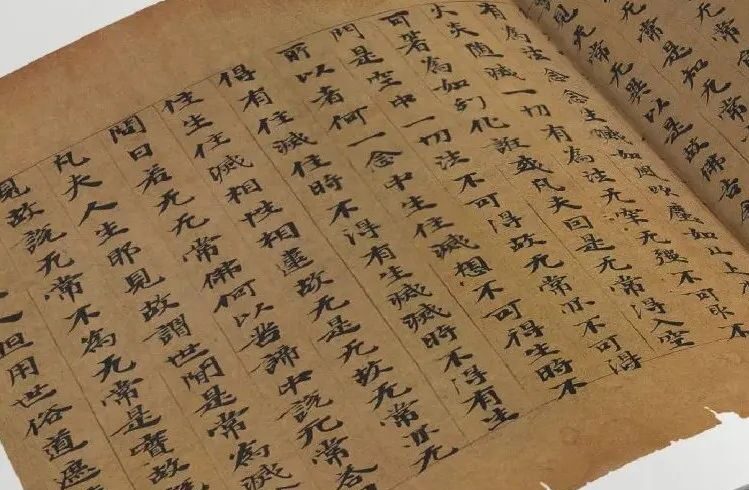 无常是知无常
見无常无異以是故佛言
有為法念念生滅如風吹塵如山上
火炎隨滅一切有為法无牢无强不可取不
可著為如幻化誑惑凡夫因是无常得入空
門是空中一切法不可得故无常亦不可得
所以者何一念中生住滅相不可得生時不
得有住滅住時不得有生滅滅時不得有生
住生住滅相性相違故无是无故无常亦无
問曰若无无常佛何以苦諦中說无常答
凡夫人生耶見故謂世間是常為滅
見故說无常不為无常是實故
人但用世俗道遮